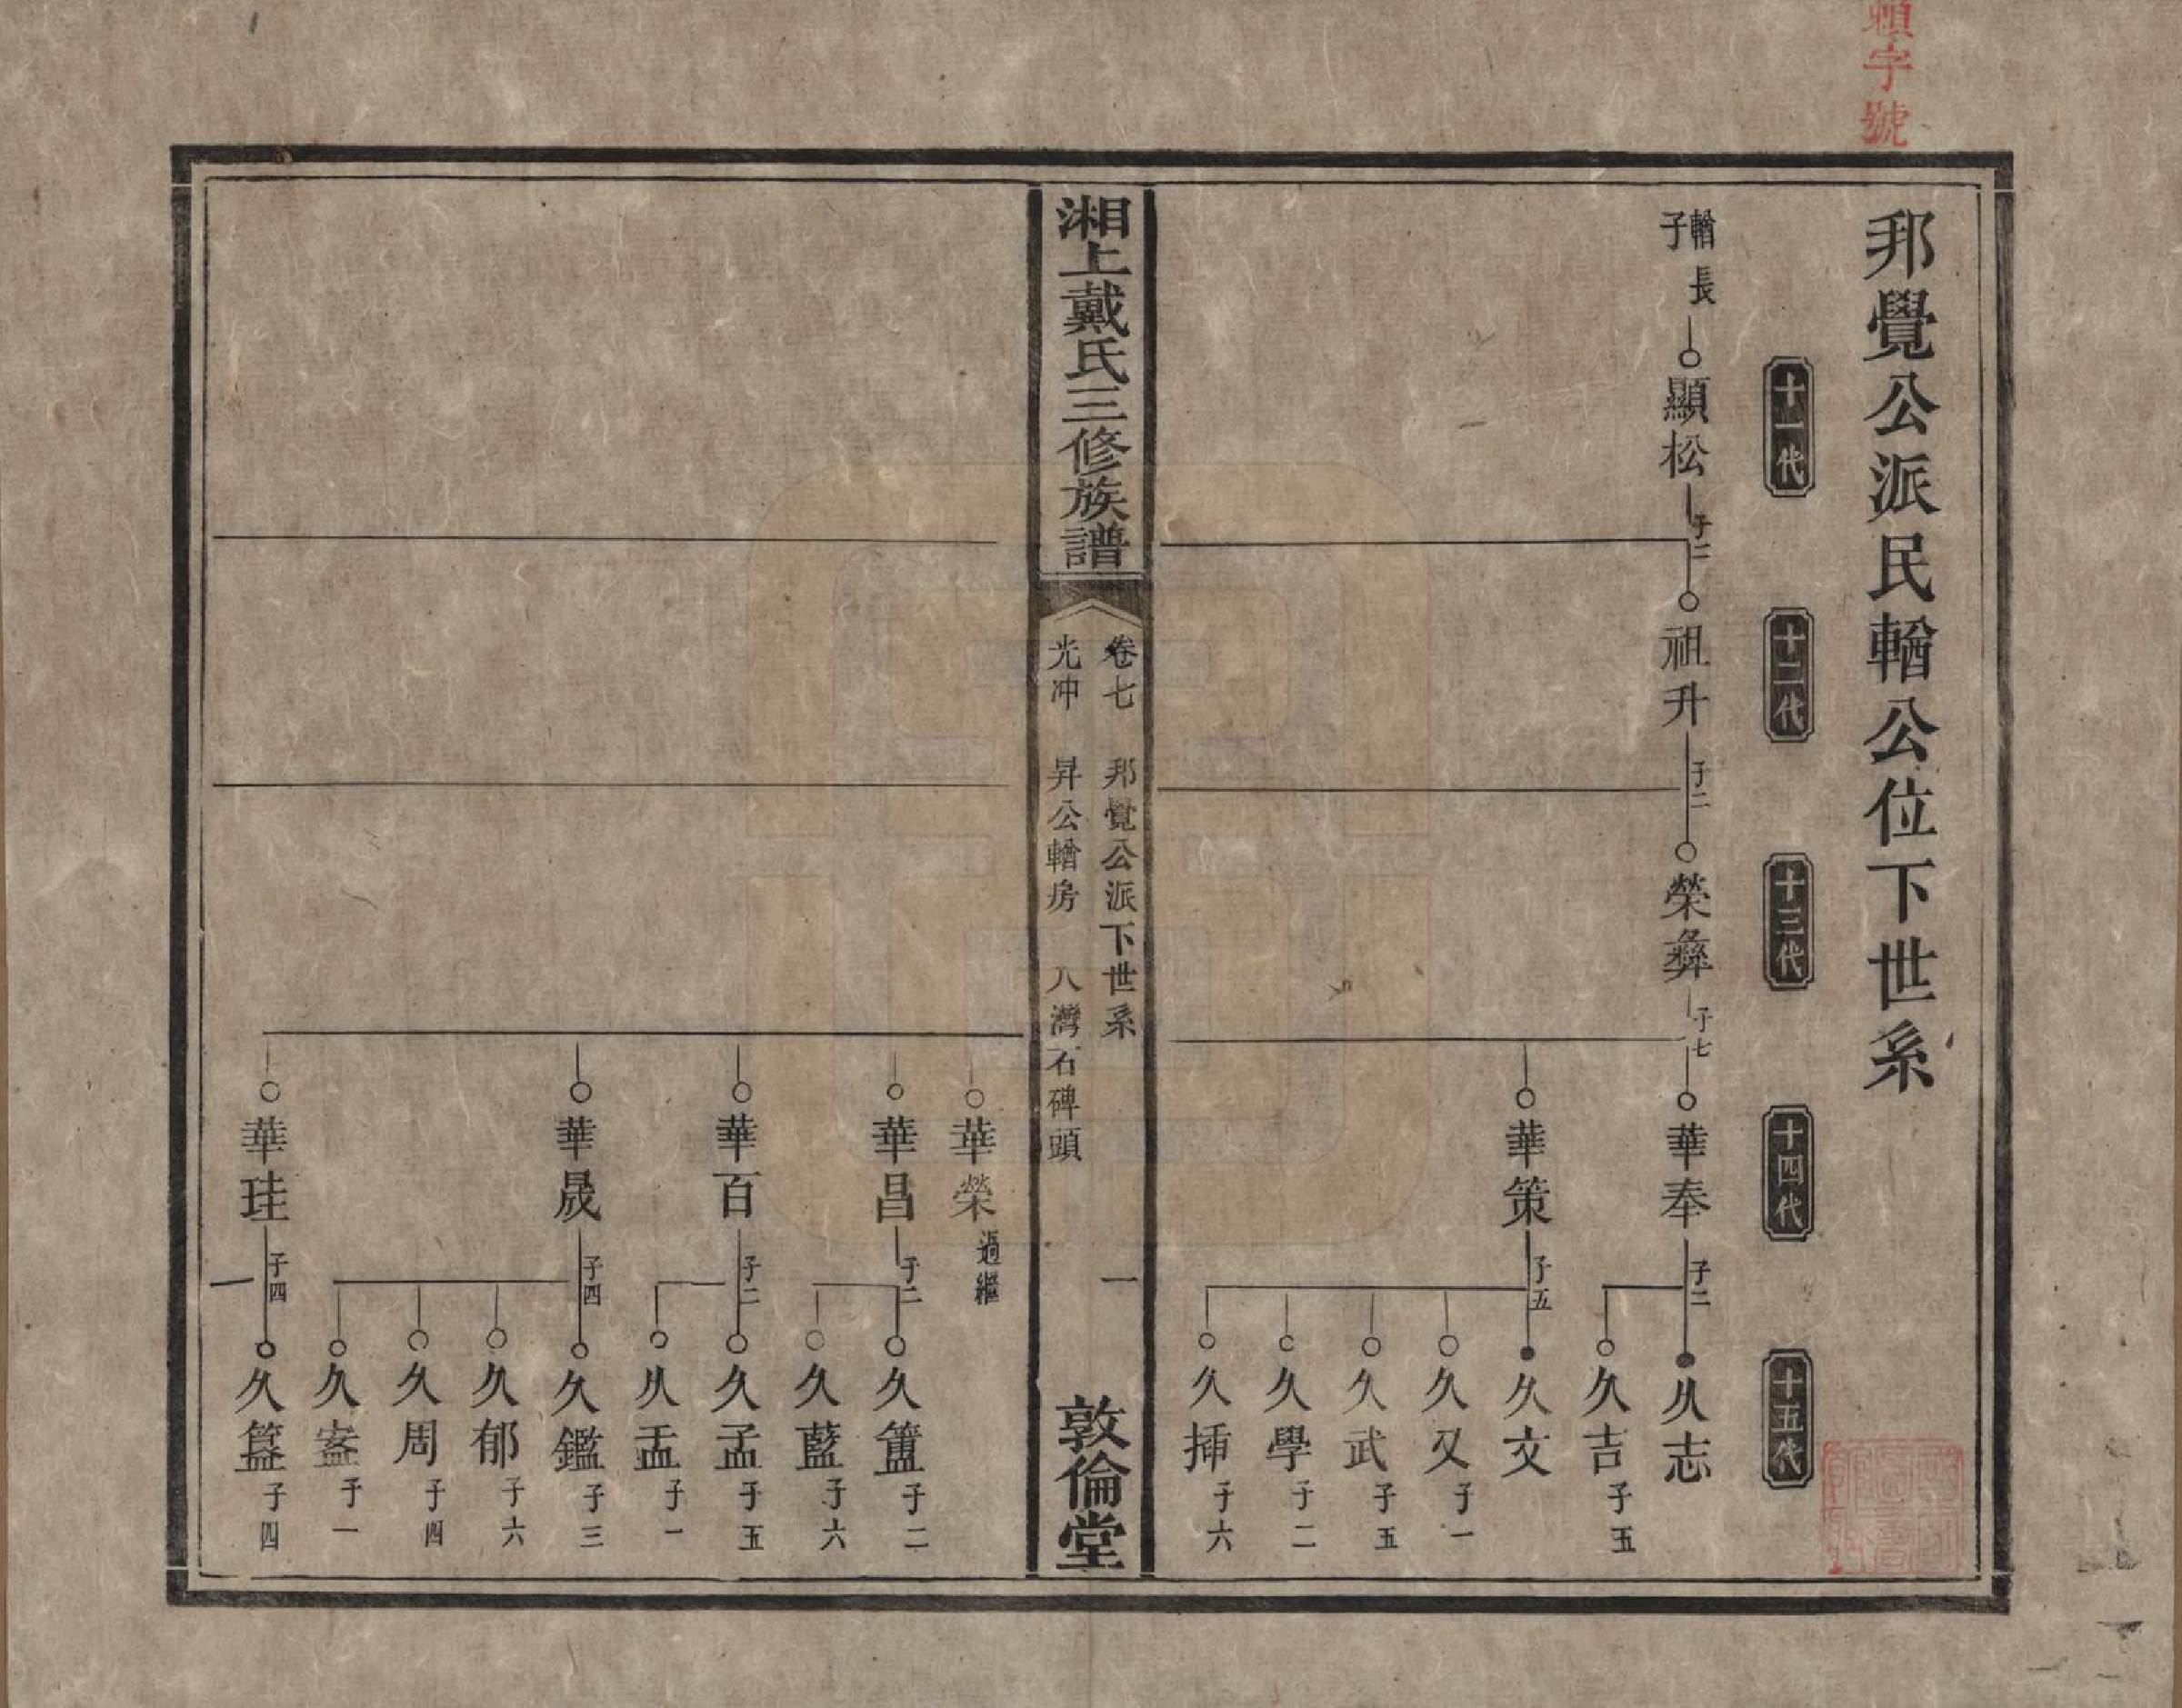 賴字號
邦覺公派民輶公位下世系
十一代
十二代
十三代
十四代
十五代
輶長子
顯松
子二
祖升
子二
榮彝
子七
華奉
子二
久志
久吉
子五
華策
子五
久文
久又
子一
久武
子五
久學
子二
久揷
子六
湘上戴氏三修族譜
卷七 邦覺公派下世系
光冲 昇公輶房 八灣石碑頭
一
敦倫堂
華榮
過繼
華昌
子二
久簠
子二
久藍
子六
華百
子二
久孟
子五
久盂
子一
華晟
子四
久鑑
子三
久郁
子六
久周
子四
久盇
子一
華珪
子四
久簋
子四